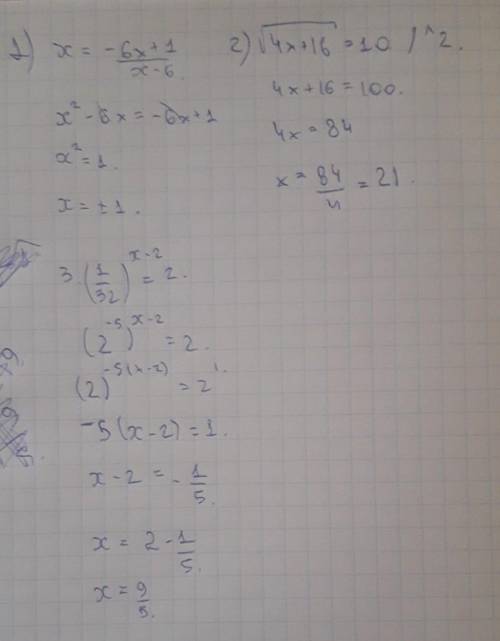 1) x = -6x+1 / x-6
x² - 6x = -6x+1
x² = 1.
x = ±1.
2) √4x+16 = 10 / ^2.
4x+16 = 100.
4x = 84
x = 84/4 = 21.
3. (1/32)^x-2 = 2.
(2^-5)^x-2 = 2.
(2)^-5(x-2) = 2^1.
-5(x-2) = 1.
x-2 = -1/5.
x = 2 - 1/5.
x = 9/5.